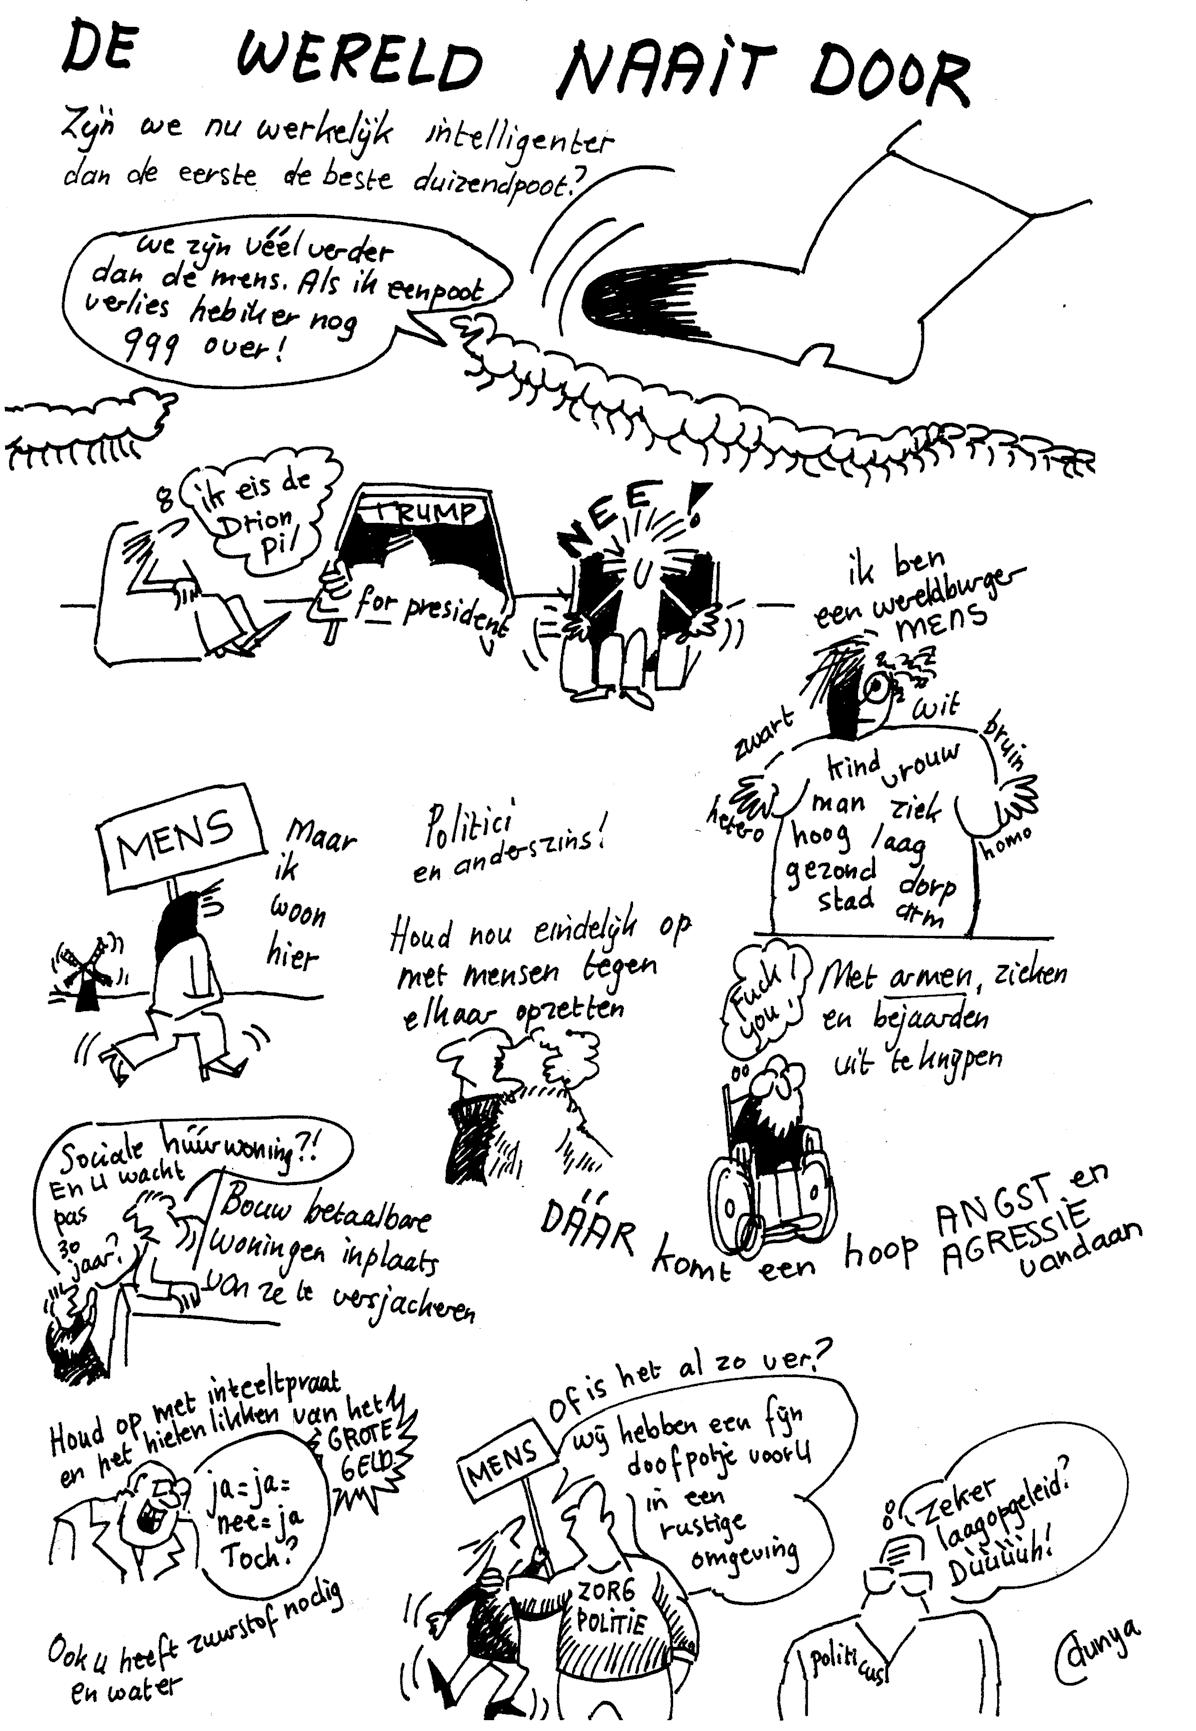 DE WERELD NAAIT DOOR
Zijn we nu werkelijk intelligenter
dan de eerste de beste duizendpoot?
We zijn véél verder
dan de mens. Als ik een poot
verlies heb ik er nog
999 over!
ik eis de
Drion
pil
TRUMP
for president
NEE!
ik ben
een wereldburger
MENS
zwart
wit
bruin
hetero
homo
kind vrouw
man ziek
hoog laag
gezond dorp
stad arm
MENS
Maar
ik
woon
hier
Politici
en anderszins!
Houd nou eindelijk op
met mensen tegen
elkaar opzetten
Fuck!
you!
Met armen, zieken
en bejaarden
uit te knijpen
Sociale húúrwoning?!
En u wacht
pas
30
jaar?
Bouw betaalbare
woningen inplaats
van ze te versjacheren
DÁÁR komt een hoop ANGST en
AGRESSIE
vandaan
Houd op met inteeltpraat
en het hielen likken van het
GROTE
GELD
ja=ja=
nee=ja
Toch?
Ook u heeft zuurstof nodig
en water
Of is het al zo ver?
MENS
Wij hebben een fijn
doofpotje voor U
in een
rustige
omgeving
ZORG
POLITIE
Zeker
laagopgeleid?
Düüüüh!
politicus
dunya